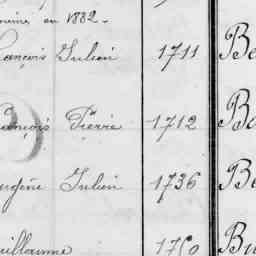 en 1832.
ançois Julien 1711 Be
ançois Pierre 1712 Ba
ugène Julien 1736 Be
uillaume 1750 Bu